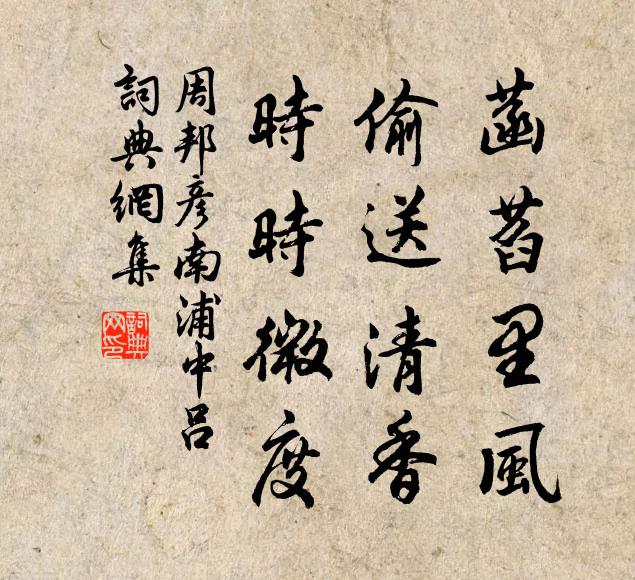 菡萏里風
偷送清香
時時微度
周邦彥南浦中呂
詞典網集
詞典網印